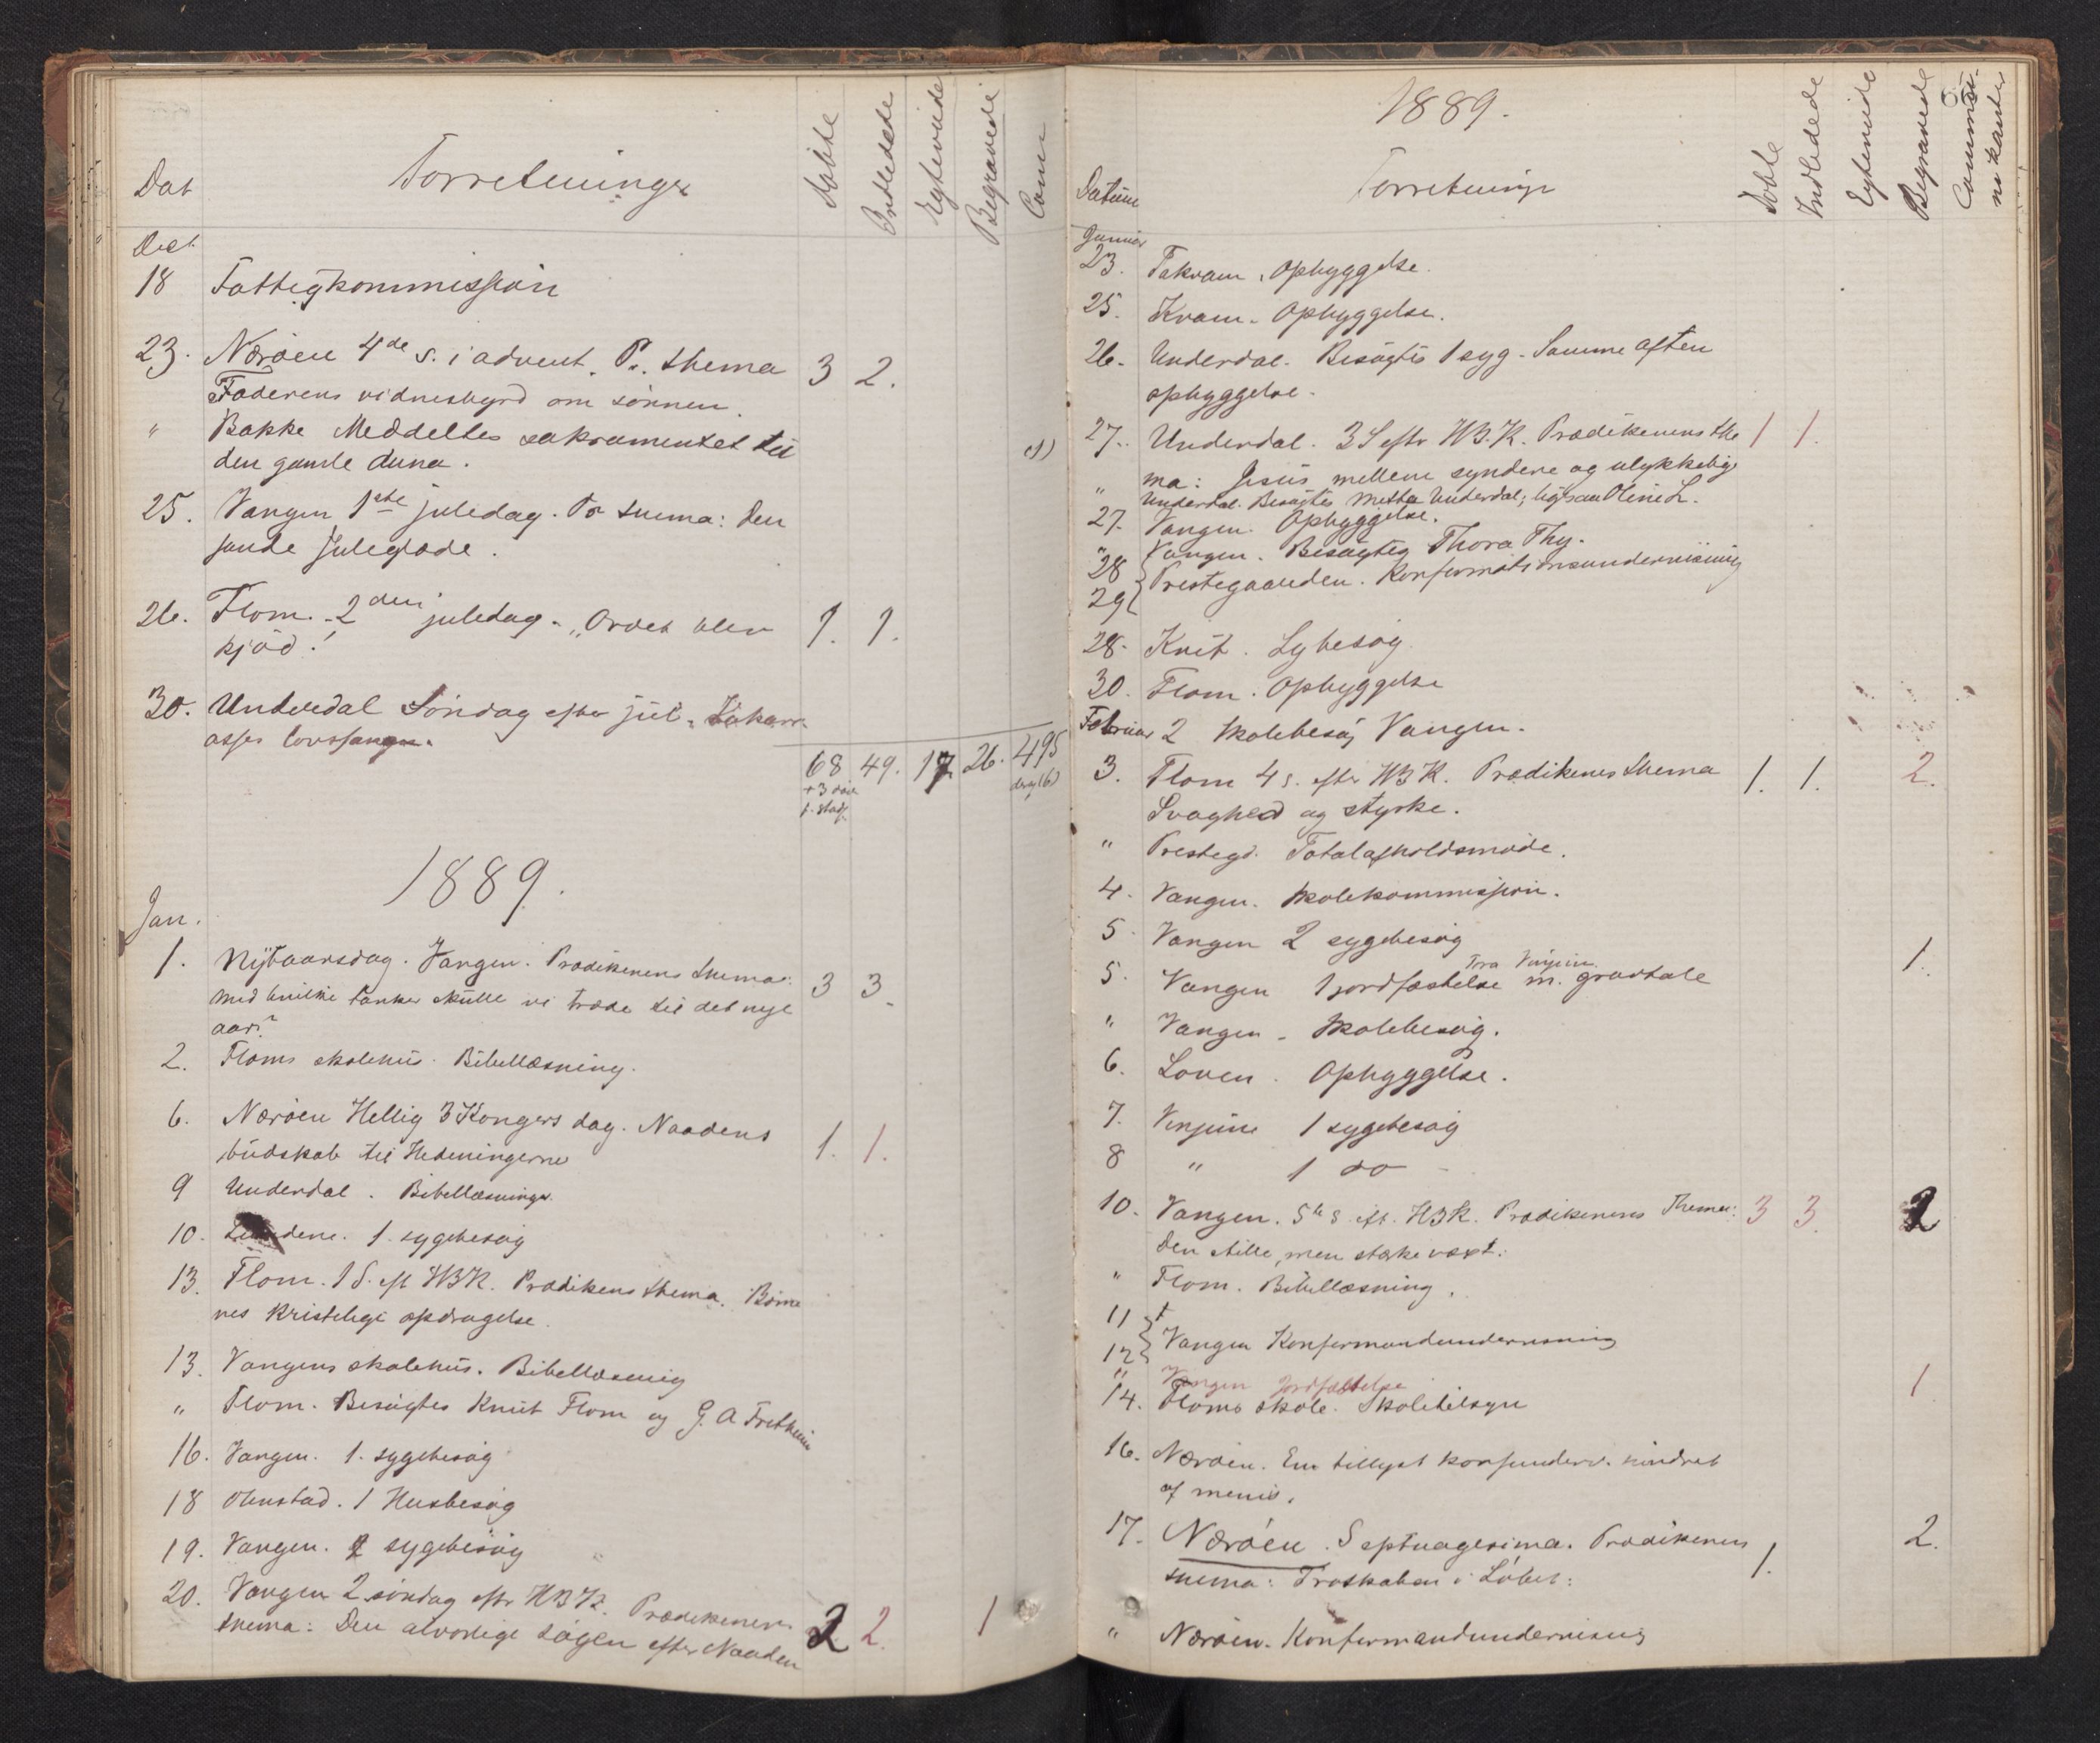 Dat Forretninger Døbte Indledede Egteviede Begravede Com
Dec
18 Fattigkommission
23. Nærøen 4de s. i advent. Pr. thema 3 2.
Faderens vidnesbyrd om sønnen.
" Bakke Meddeltes sakramentet til
den gamle Anna. (1)
25. Vangen 1ste juledag. Pr thema: Den
sande Juleglæde.
26. Flom. 2den juledag. "Ordet blev 1. 1.
kjød!
30. Underdal Søndag efter jul. Zakari-
asses lovsange.
68 49. 17 26. 495
+ 3 døde
f. stadf.
1889.
Jan.
1. Nytaarsdag. Vangen. Prædikenens thema: 3 3.
Med hvilke tanker skulle vi træde til det nye
aar?
2. Floms skolehus. Bibellæsning.
6. Nærøen Hellig 3 Kongers dag. Naadens
budskab til Hedningerne 1. 1.
9 Underdal. Bibellæsning.
10. 1. sygebesøg
13. Flom. 1 S. eft H3K. Prædikens thema. Børne
nes kristelige opdragelse.
13. Vangens skolehus. Bibellæsning
" Flom. Besøgtes Knut Flom og G. A Fretheim
16. Vangen. 1. sygebesøg
18 Ohnstad. 1 Husbesøg
19. Vangen. 2 sygebesøg
20. Vangen 2 søndag eftr H3K. Prædikenens
thema: Den alvorlige søgen efter Naaden 2 2. 1
1889.
Datum Forretninger Døbte Indledede Egteviede Begravede Communikanter
Januar
23. Tokvam. Opbyggelse.
25. Kvam. Opbyggelse.
26. Underdal. Besøgtes 1 syg. Samme aften
opbyggelse.
27. Underdal. 3 S eftr H3.K. Prædikenens the 1 1.
ma: Jesus mellem syndere og ulykkelige
" Underdal. Besøgtes Metha Underdal; ligesaa Oline L.
27. Vangen. Opbyggelse.
" Vangen. Besøgtes Thora Thy.
28 29 Prestegaarden. Konfirmationsundervisning
28. Knut. Sybesøg
30. Flom. Opbyggelse
Februar 2 Skolebesøg Vangen.
3. Flom 4 s. efter H3K. Prædikenes thema 1. 1. 2.
Svaghed og styrke.
" Prestegd. Totalafholdsmøde.
4. Vangen. Skolekommission.
5. Vangen 2 sygebesøg
fra Vinjum
5. Vangen 1 jordfæstelse m. gravtale 1.
" Vangen - Skolebesøg.
6. Loven. Opbyggelse.
7. Vinjum 1 sygebesøg
8 " 1 do -
10. Vangen. 5te S. eft. H3K. Prædikenens Thema: 3 3. 2
Den stille, men stærke væxt.
" Flom. Bibellæsning.
11
12 Vangen Konfirmandundervisning
" Vangen Jordfæstelse 1
14. Floms skole. Skoletilsyn
16. Nærøen. En tillyst konfunderv. hindret
af menis.
17. Nærøen. Septuagesima. Prædikenens 2.
thema: Troskaben i Løbet: 1.
" Nærøen. Konfirmandundervisning